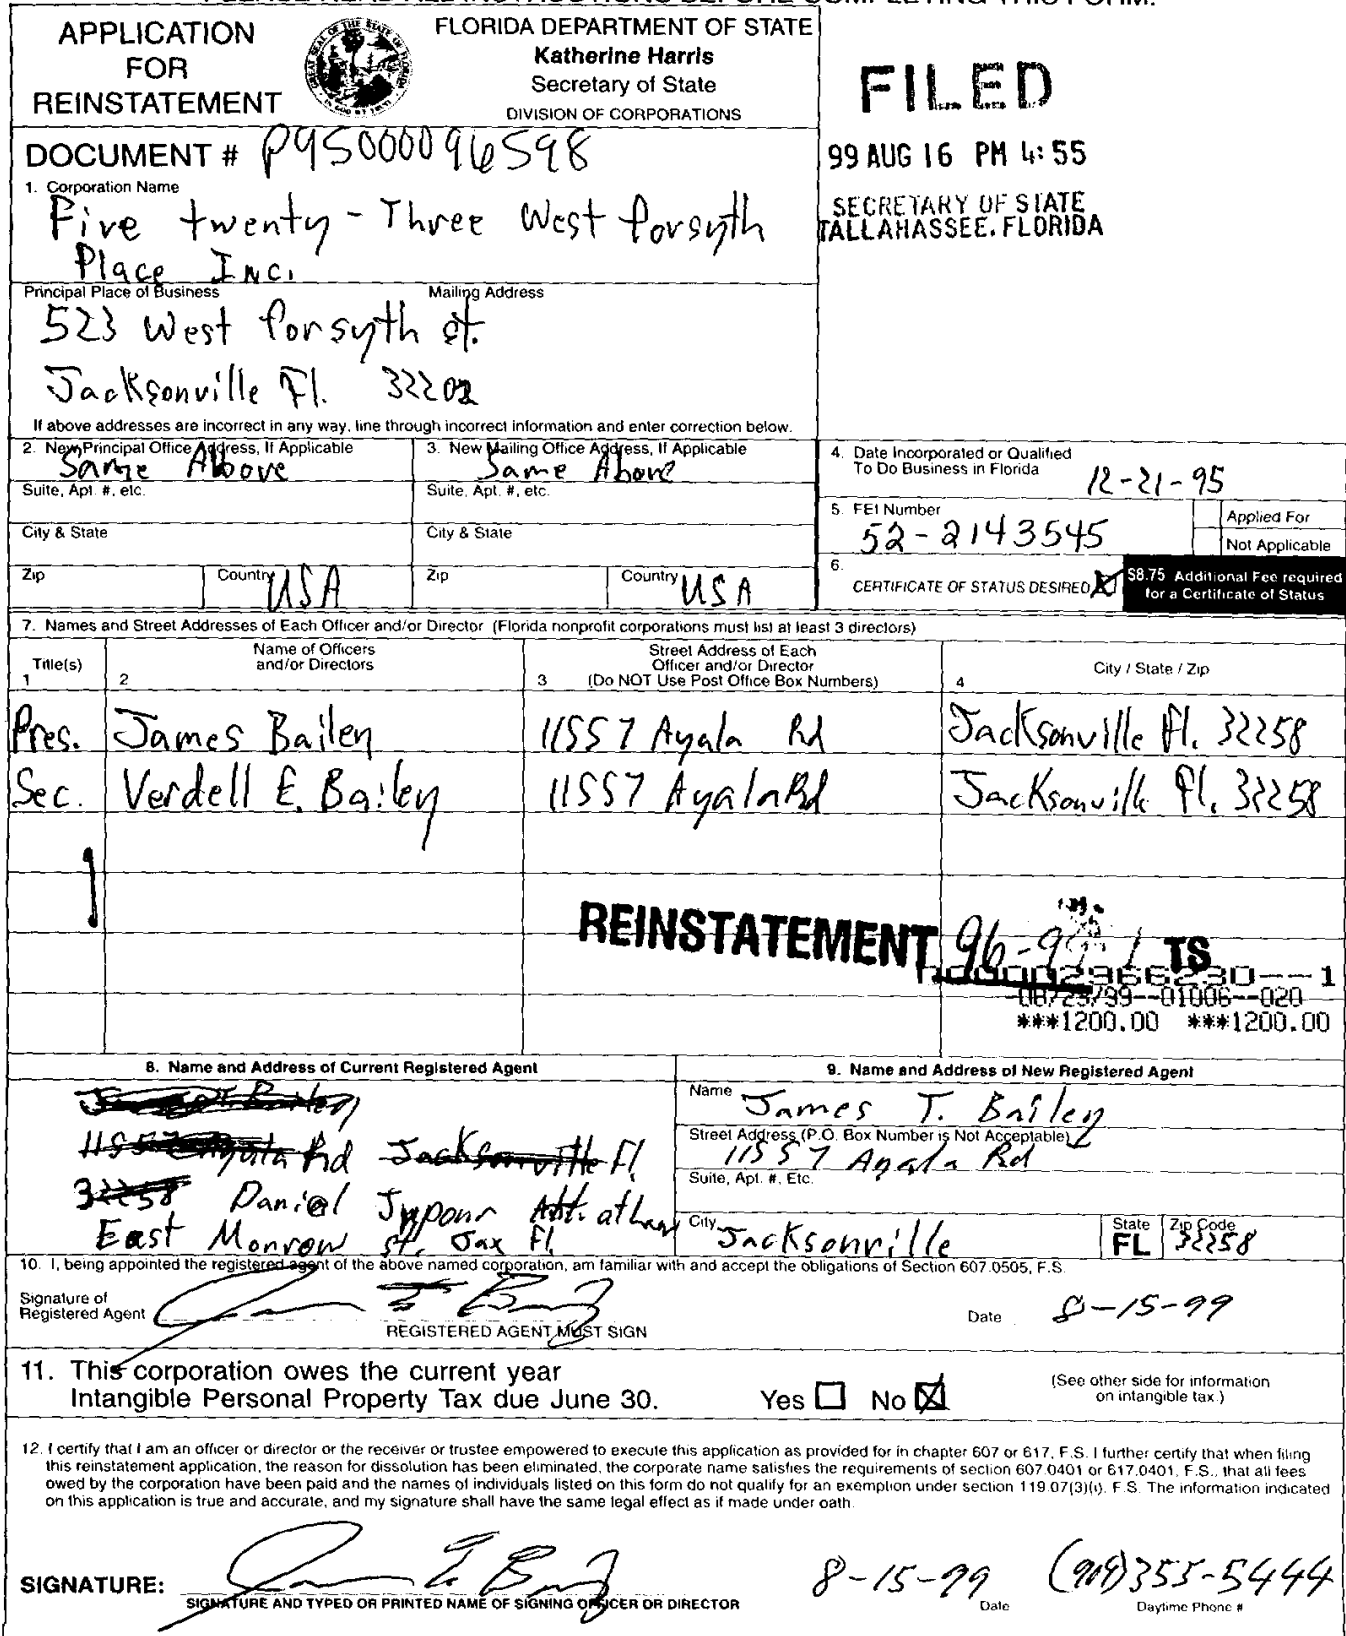 PLEASE READ ALL INSTRUCTIONS BEFORE COMPLETING THIS FORM.
APPLICATION
FOR
REINSTATEMENT
FLORIDA DEPARTMENT OF STATE
Katherine Harris
Secretary of State
DIVISION OF CORPORATIONS
FILED
99 AUG 16 PM 4:55
SECRETARY OF STATE
TALLAHASSEE, FLORIDA
DOCUMENT # P95000096598
1. Corporation Name
Five twenty-Three West Forsyth
Place Inc.
Principal Place of Business Mailing Address
523 West Forsyth St.
Jacksonville Fl. 32202
If above addresses are incorrect in any way, line through incorrect information and enter correction below.
2. New Principal Office Address, If Applicable
Same Above
3. New Mailing Office Address, If Applicable
Same Above
Suite, Apt. #, etc. Suite, Apt. #, etc.
City & State City & State
Zip Country USA Zip Country USA
4. Date Incorporated or Qualified
To Do Business in Florida 12-21-95
5. FEI Number
52-2143545
Applied For
Not Applicable
6.
CERTIFICATE OF STATUS DESIRED
$8.75 Additional Fee required
for a Certificate of Status
7. Names and Street Addresses of Each Officer and/or Director (Florida nonprofit corporations must list at least 3 directors)
Title(s)
1
Name of Officers
and/or Directors
2
Street Address of Each
Officer and/or Director
3 (Do NOT Use Post Office Box Numbers)
City / State / Zip
4
Pres. James Bailey 11557 Ayala Rd Jacksonville Fl. 32258
Sec. Verdell E. Bailey 11557 Ayala Rd Jacksonville Fl. 32258
REINSTATEMENT 96-99 TS
2966230--1
-08/23/99--01006--020
***1200.00 ***1200.00
8. Name and Address of Current Registered Agent
Bailey
11557 Ayala Rd Jacksonville Fl
32258 Daniel
East Monrow St. Jax Fl
9. Name and Address of New Registered Agent
Name James T. Bailey
Street Address (P.O. Box Number is Not Acceptable)
11557 Ayala Rd
Suite, Apt. #, Etc.
City Jacksonville State FL Zip Code 32258
10. I, being appointed the registered agent of the above named corporation, am familiar with and accept the obligations of Section 607.0505, F.S.
Signature of
Registered Agent
Date 8-15-99
REGISTERED AGENT MUST SIGN
11. This corporation owes the current year
Intangible Personal Property Tax due June 30. Yes No
(See other side for information
on intangible tax.)
12. I certify that I am an officer or director or the receiver or trustee empowered to execute this application as provided for in chapter 607 or 617, F.S. I further certify that when filing
this reinstatement application, the reason for dissolution has been eliminated, the corporate name satisfies the requirements of section 607.0401 or 617.0401, F.S., that all fees
owed by the corporation have been paid and the names of individuals listed on this form do not qualify for an exemption under section 119.07(3)(i), F.S. The information indicated
on this application is true and accurate, and my signature shall have the same legal effect as if made under oath.
SIGNATURE:
8-15-99 (904)355-5444
SIGNATURE AND TYPED OR PRINTED NAME OF SIGNING OFFICER OR DIRECTOR Date Daytime Phone #